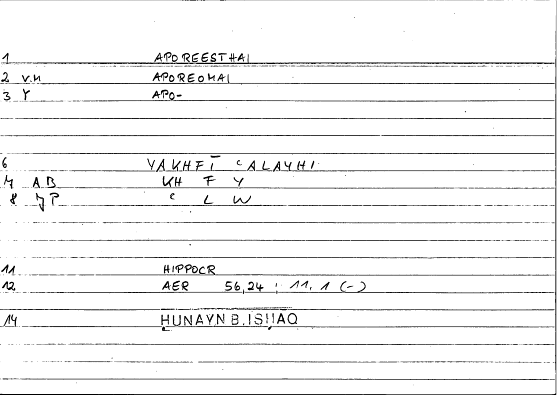 1 APOREESTHAI
2 V.M APOREOMAI
3 Y APO-
6 YAKHFĪ ᶜALAYHI
7 AB KH F Y
8 JP ᶜ L W
11 HIPPOCR
12 AER 56,24 : 11,1 (-)
14 HUNAYN B.ISHAQ